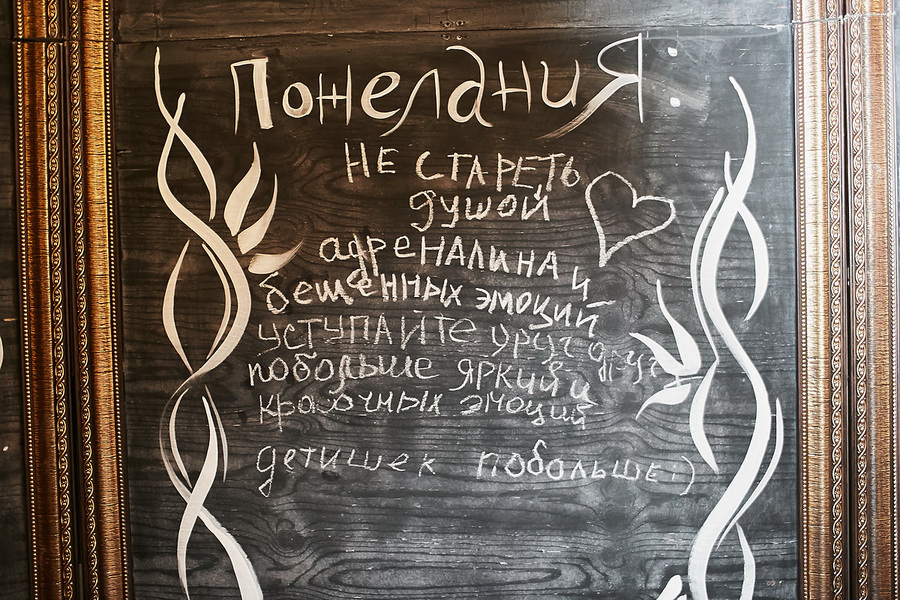 Пожелания:
НЕ СТАРЕТЬ
душой
адРЕНАЛИНА и
бешЕННЫХ эмоций
УСТУПАЙТЕ друг другу
побольше ЯРКИЙ и
красочных эмоций
детишек побольше:)